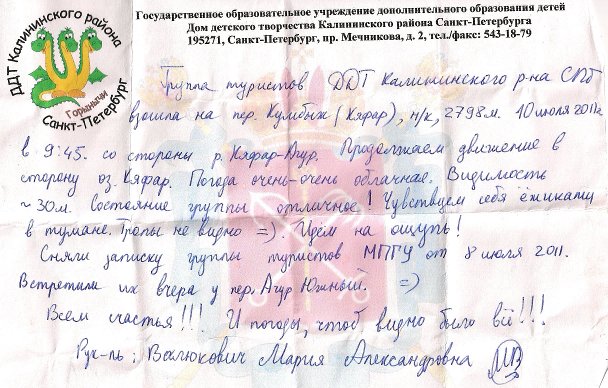 ДДТ Калининского района
Горынычи
Санкт-Петербург
Государственное образовательное учреждение дополнительного образования детей
Дом детского творчества Калининского района Санкт-Петербурга
195271, Санкт-Петербург, пр. Мечникова, д. 2, тел./факс: 543-18-79
Группа туристов ДДТ Калининского р-на СПб
взошла на пер. Кумбыж (Кяфар), н/к, 2798м. 10 июля 2011г
в 9:45. со стороны р. Кяфар-Агур. Продолжаем движение в
сторону оз. Кяфар. Погода очень-очень облачная. Видимость
~30м. Состояние группы отличное! Чувствуем себя ёжиками
в тумане. Тропы не видно =). Идём на ощупь!
Сняли записку группы туристов МПГУ от 8 июля 2011.
Встретили их вчера у пер. Агур Южный. =)
Всем счастья!!! И погоды, чтоб видно было всё!!!
Рук-ль: Валюкович Мария Александровна МВ